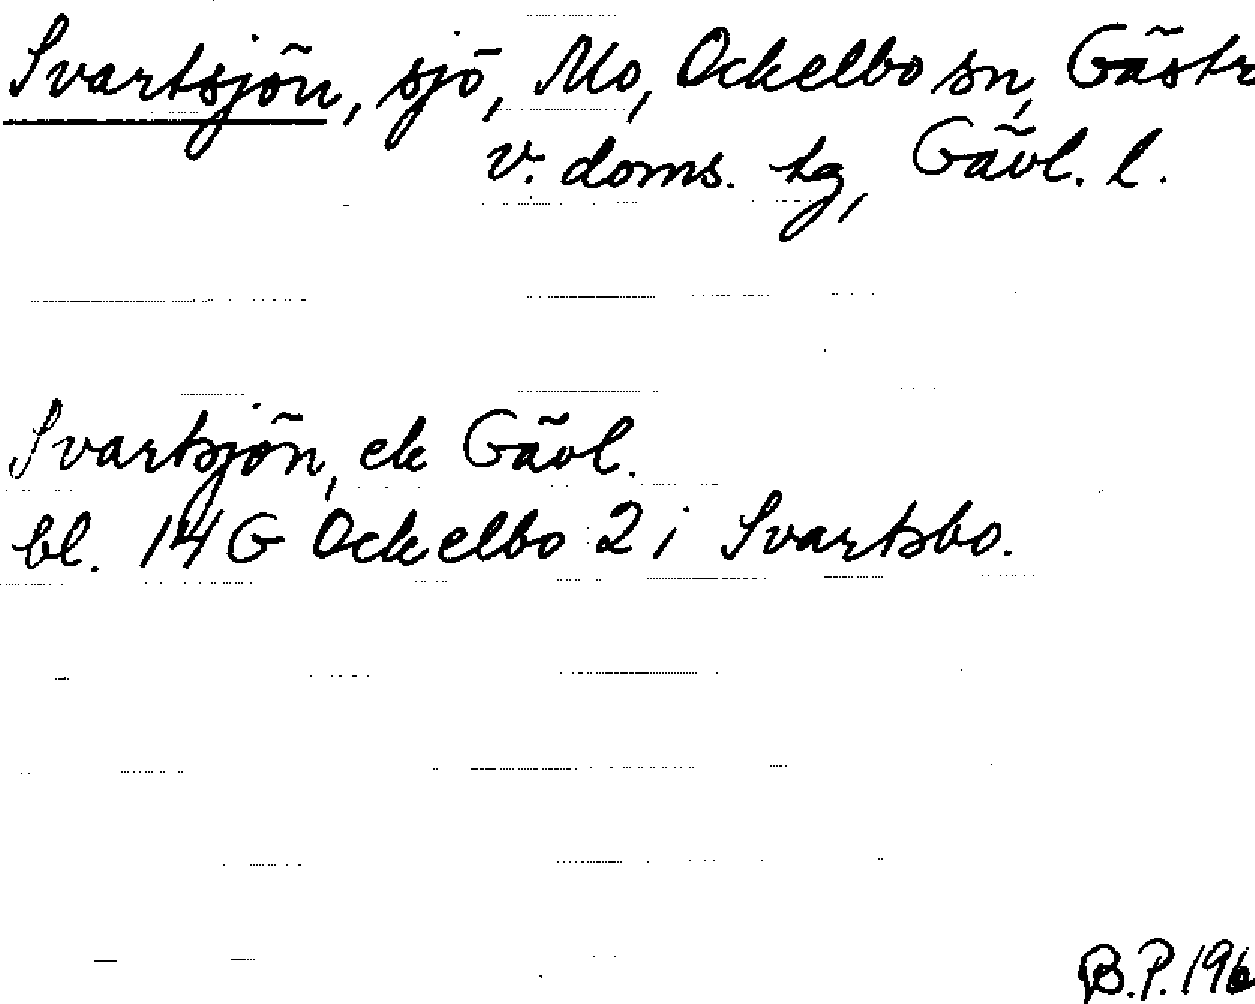 Svartsjön, sjö, Mo, Ockelbo sn, Gästr
v. doms. tg, Gävl. l.
Svartsjön, ek Gävl.
bl. 14 G Ockelbo 2 i Svartsbo.
B.P. 196